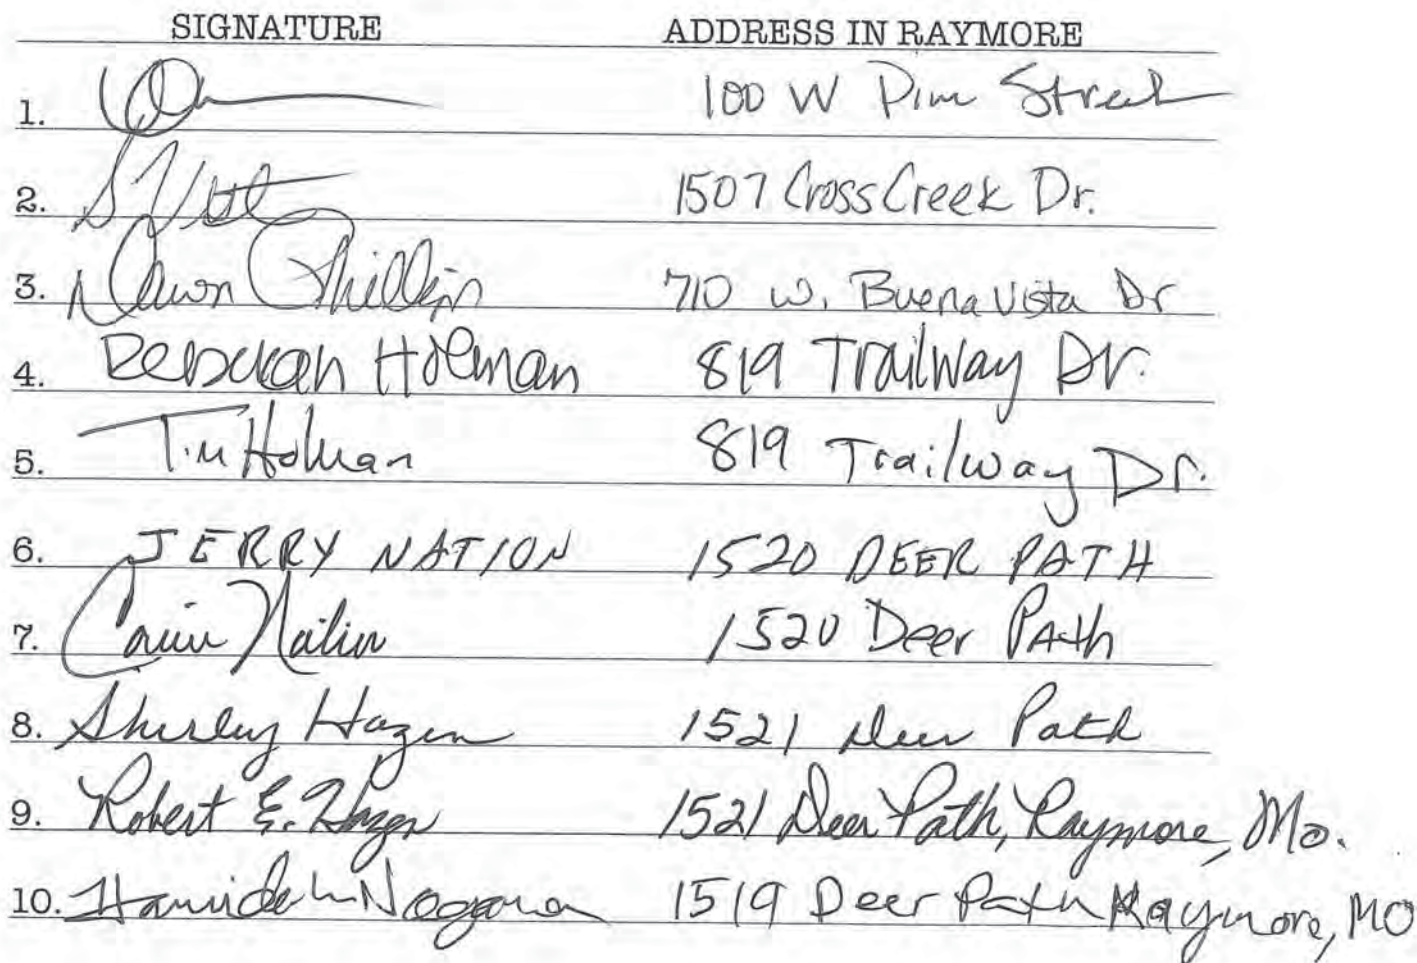 SIGNATURE ADDRESS IN RAYMORE
1. 100 W Pine Street
2. 1507 Cross Creek Dr.
3. Dawn Phillips 710 W. Buena Vista Dr
4. Deborah Holman 819 Trailway Dr.
5. Tim Holman 819 Trailway Dr.
6. JERRY NATION 1520 DEER PATH
7. Nation 1520 Deer PAth
8. Shirley Hazen 1521 Deer Path
9. Robert E. Hazen 1521 Deer Path, Raymore, Mo.
10. 1519 Deer Path Raymore, MO